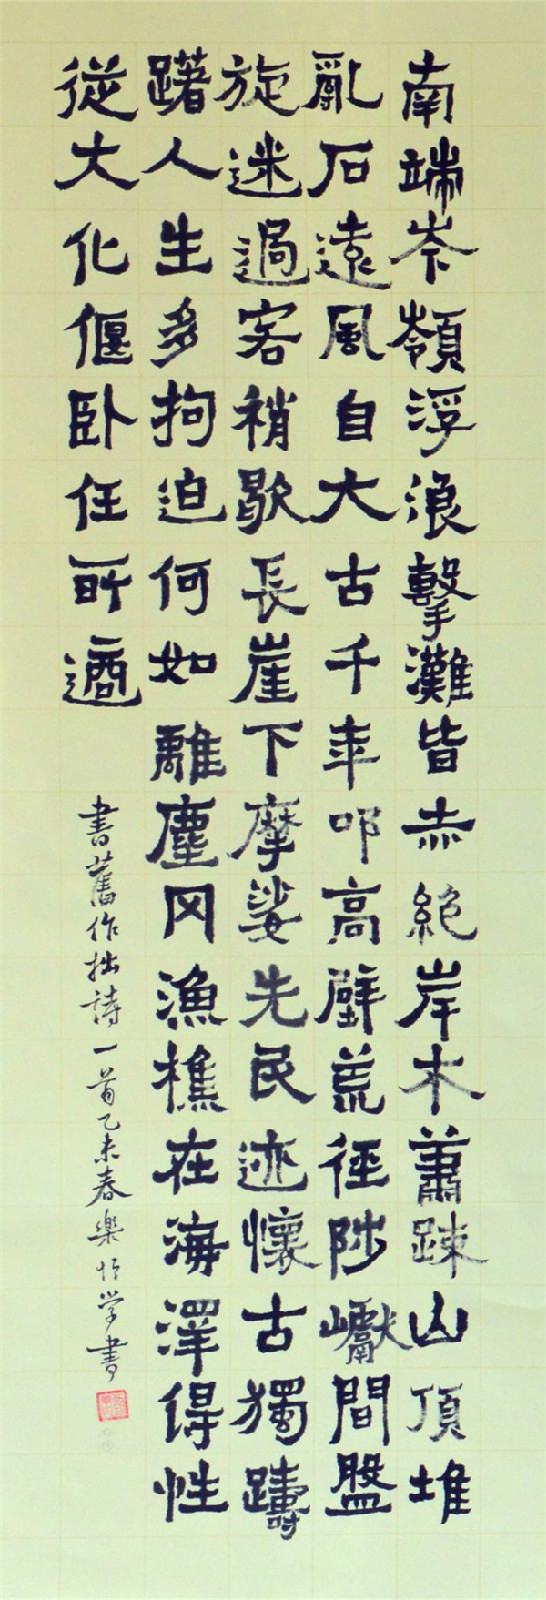 南端岑嶺浮浪擊灘皆赤絕岸木蕭踈山頂堆
亂石遠風自大古千年叩高壁荒徑陟巘間盤
旋迷過客稍歇長崖下摩娑先民迹懷古獨躊
躇人生多拘迫何如離塵网漁樵在海澤得性
從大化偃卧任所適
書舊作拙詩一首乙未春樂学書